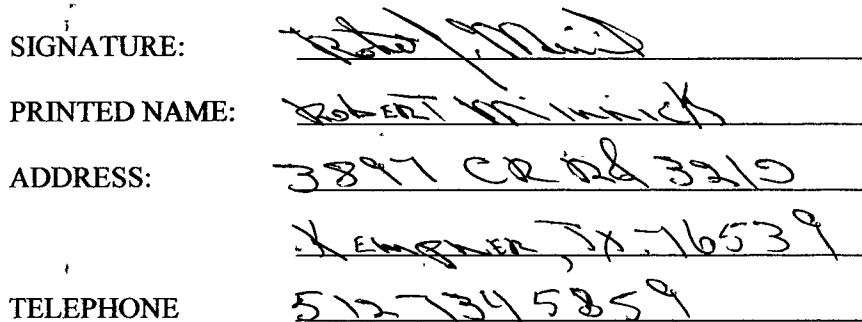 SIGNATURE: Robert J. Minnick
PRINTED NAME: ROBERT Minnick
ADDRESS: 3897 CR Rd 3210
Kempner, TX 76539
TELEPHONE 512 734 5859